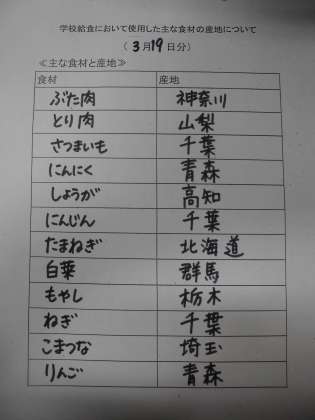 学校給食において使用した主な食材の産地について
（3月19日分）
≪主な食材と産地≫
食材 産地
ぶた肉 神奈川
とり肉 山梨
さつまいも 千葉
にんにく 青森
しょうが 高知
にんじん 千葉
たまねぎ 北海道
白菜 群馬
もやし 栃木
ねぎ 千葉
こまつな 埼玉
りんご 青森